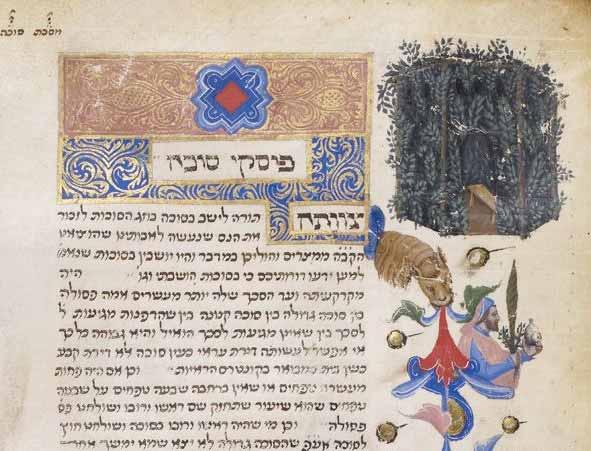 מסכת סוכה
פיסקי סוכה
צוותה
תורה לישב בסוכה בחג הסוכות לזכור
את הנס שנעשה לאבותינו שהוציאם
הקבה ממצרים והוליכן במדבר והיו יושבין בסוכות שנאמ
למען ידעו דורותיכם כי בסוכות הושבתי וגו' היה
מקרקעיתה ועד הסכך שלה יותר מעשרים אמה פסולה
בין סוכה גדולה בין סוכה קטנה בין שהדפנות מגיעות ל
לסכך בין שאינן מגיעות לסכך הואיל והיא גבוהה כל כך
אי איפשר לעשותה דירת עראי כעין סוכה לא דירת קבע
כעין בית כמבואר בקונטרס הראיות וכן אם היה פחות
מעשרה טפחים או שאין ברחבה שבעה טפחים על שבעה
טפחים שהוא שיעור שתחזק שם ראשו ורובו ושולחנו פס
פסולה וכן מי שהיה ראשו ורובו בסוכה ושולחנו חוץ
לסוכה אעפ שהסוכה גדולה לא יצא שמא ימשך אחר